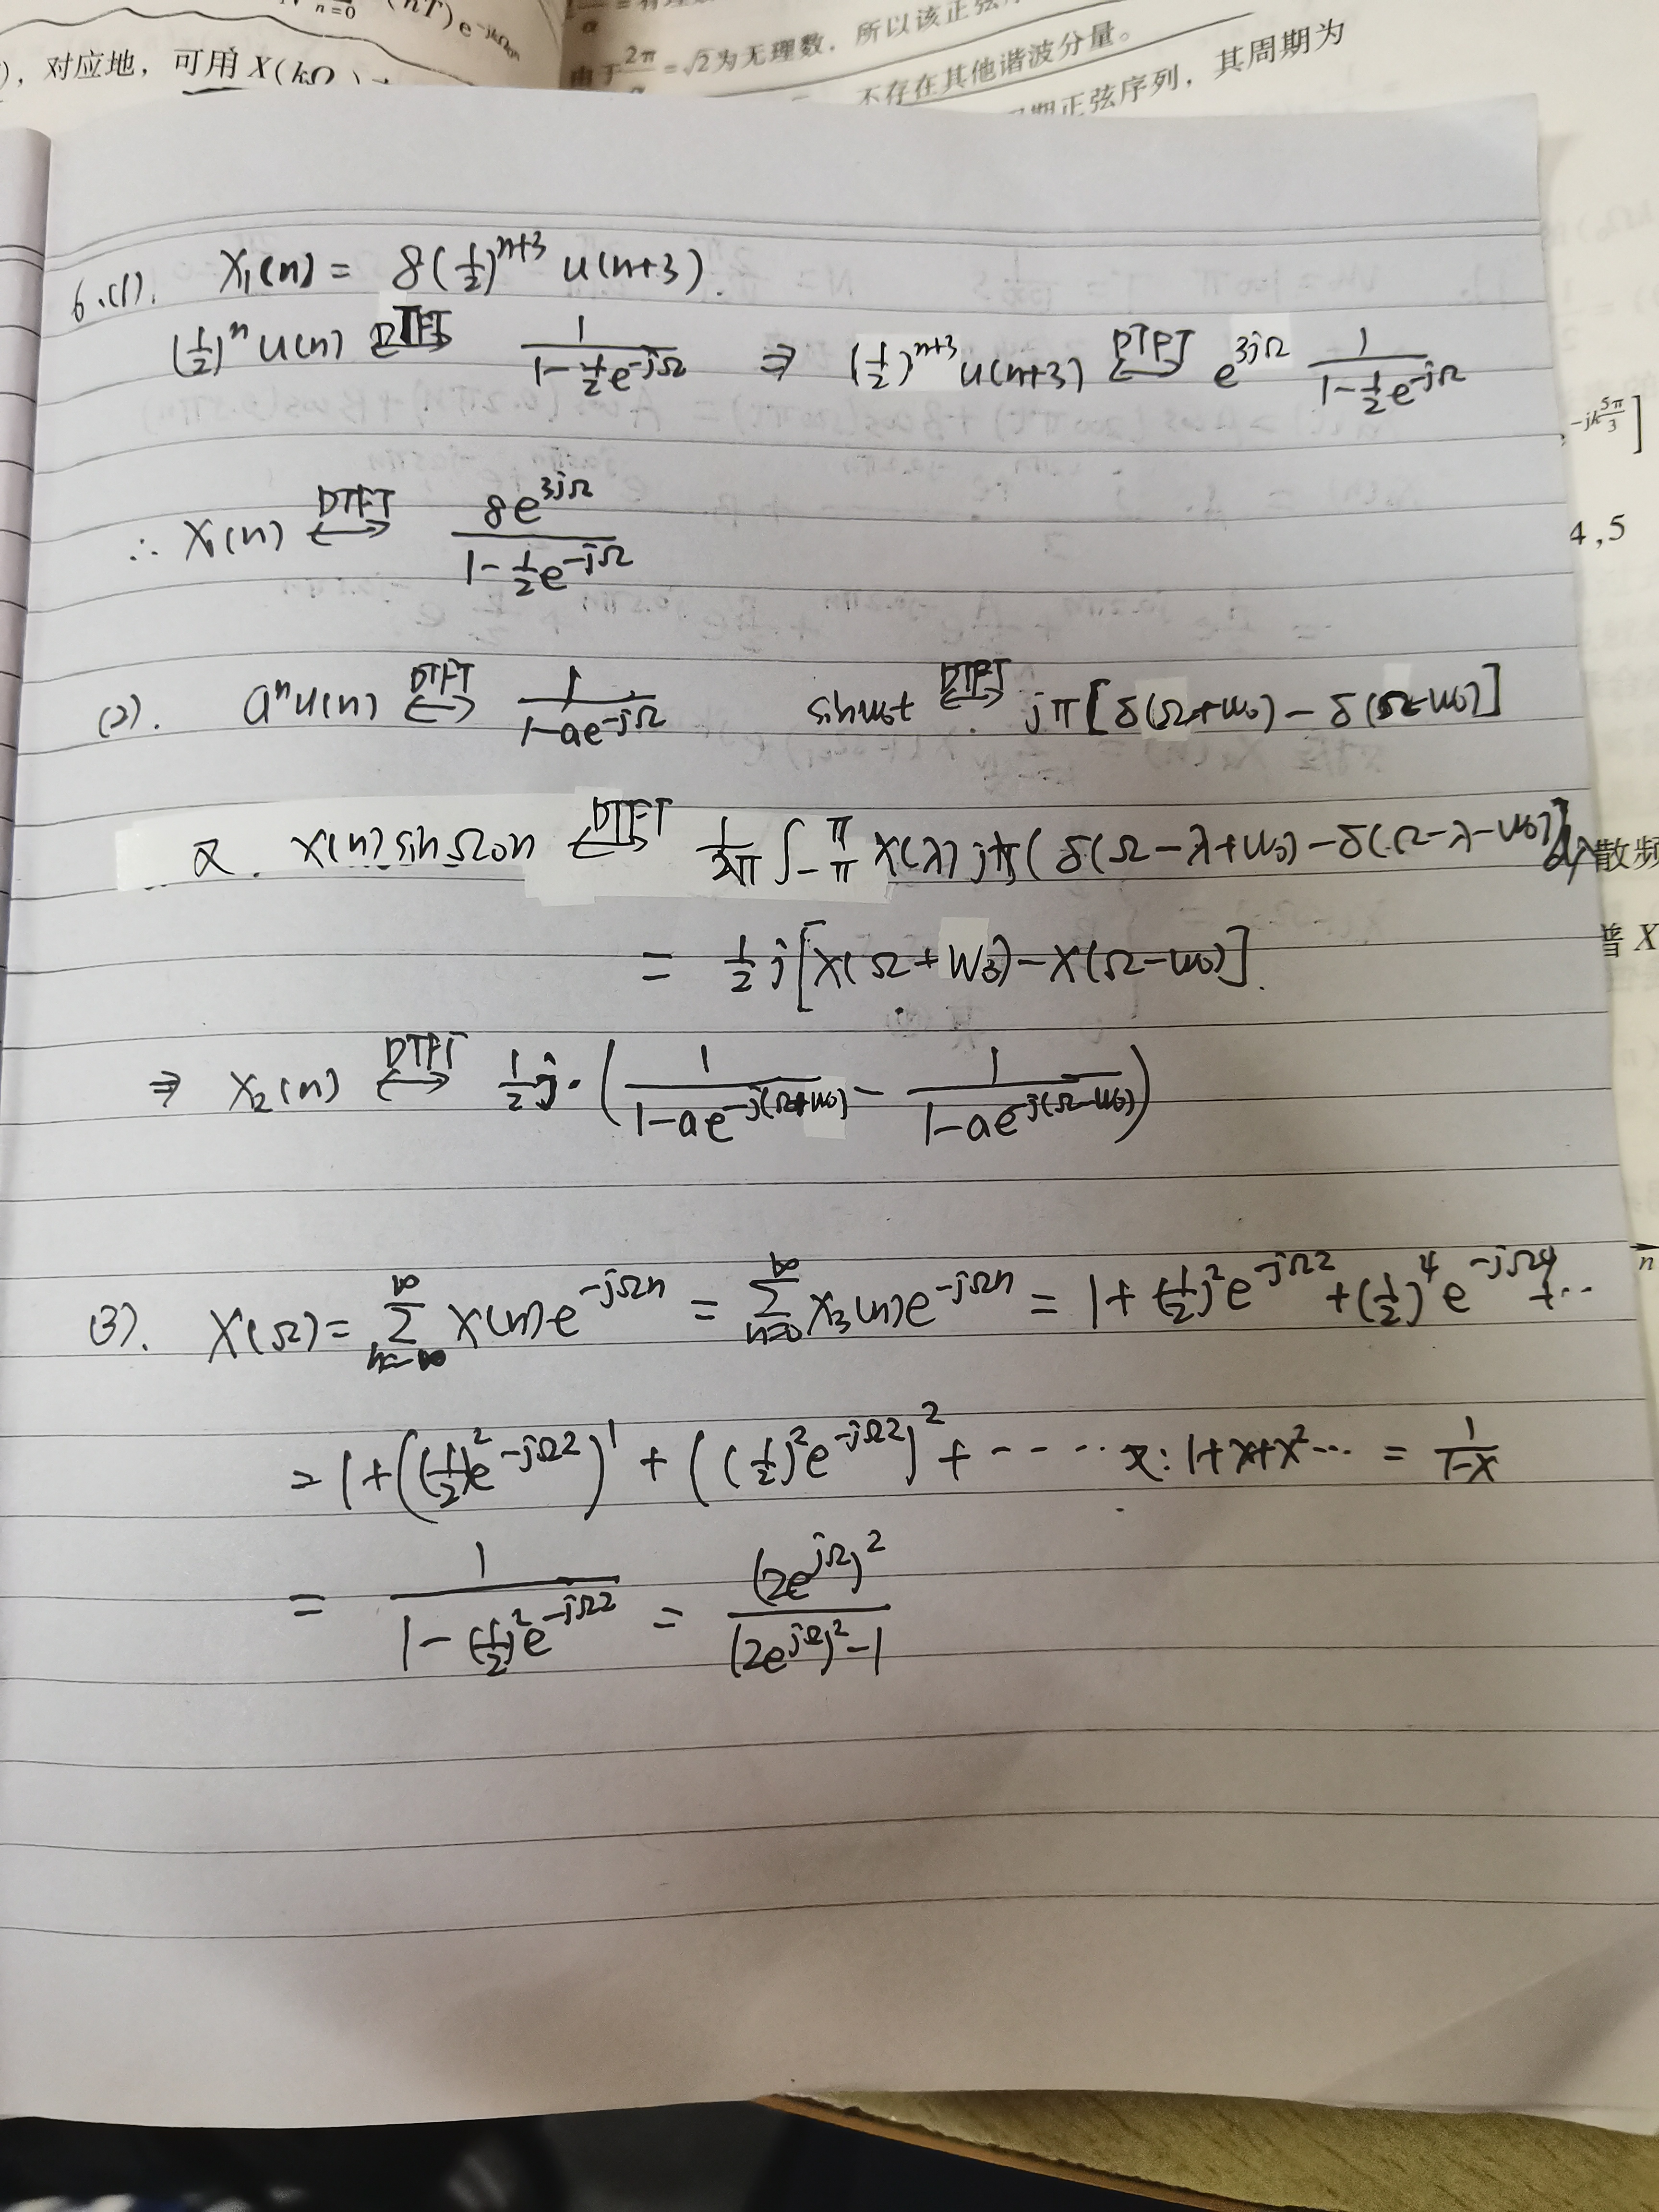 n=0 (nT)e
，对应地，可用 X(kΩ
由于 2π/ = √2为无理数．所以该正弦
不存在其他谐波分量。
期正弦序列，其周期为
6.(1). X₁(n) = 8(1/2)^{n+3} u(n+3).
(1/2)^n u(n) ⟷DTFT 1/(1-1/2 e^{-jΩ}) ⇒ (1/2)^{n+3} u(n+3) ⟷DTFT e^{3jΩ} 1/(1-1/2 e^{-jΩ})
-jk 5π/3 ]
∴ X₁(n) ⟷DTFT 8e^{3jΩ}/(1-1/2 e^{-jΩ})
4,5
(2). aⁿu(n) ⟷DTFT 1/(1-ae^{-jΩ}) sinω₀t ⟷DTFT jπ[δ(Ω+ω₀)-δ(Ω-ω₀)]
又. X(n) sinΩ₀n ⟷DTFT 1/2π ∫_{-π}^{π} X(λ) jπ(δ(Ω-λ+ω₀)-δ(Ω-λ-ω₀)]dλ
散频
= 1/2 j[X(Ω+ω₀)-X(Ω-ω₀)].
普 X
⇒ X₂(n) ⟷DTFT 1/2 j·(1/(1-ae^{-j(Ω+ω₀)} - 1/(1-ae^{-j(Ω-ω₀)}))
n
(3). X(Ω) = ∑_{n=-∞}^{∞} X(n)e^{-jΩn} = ∑_{n=0}^{∞} X₃(n)e^{-jΩn} = 1+(1/2)²e^{-jΩ2}+(1/2)⁴e^{-jΩ4}+…
= 1+((1/2)²e^{-jΩ2})¹+((1/2)²e^{-jΩ2})²+----… 又: 1+x+x²… = 1/(1-x)
= 1/(1-(1/2)²e^{-jΩ2}) = (2e^{jΩ})²/((2e^{jΩ})²-1)